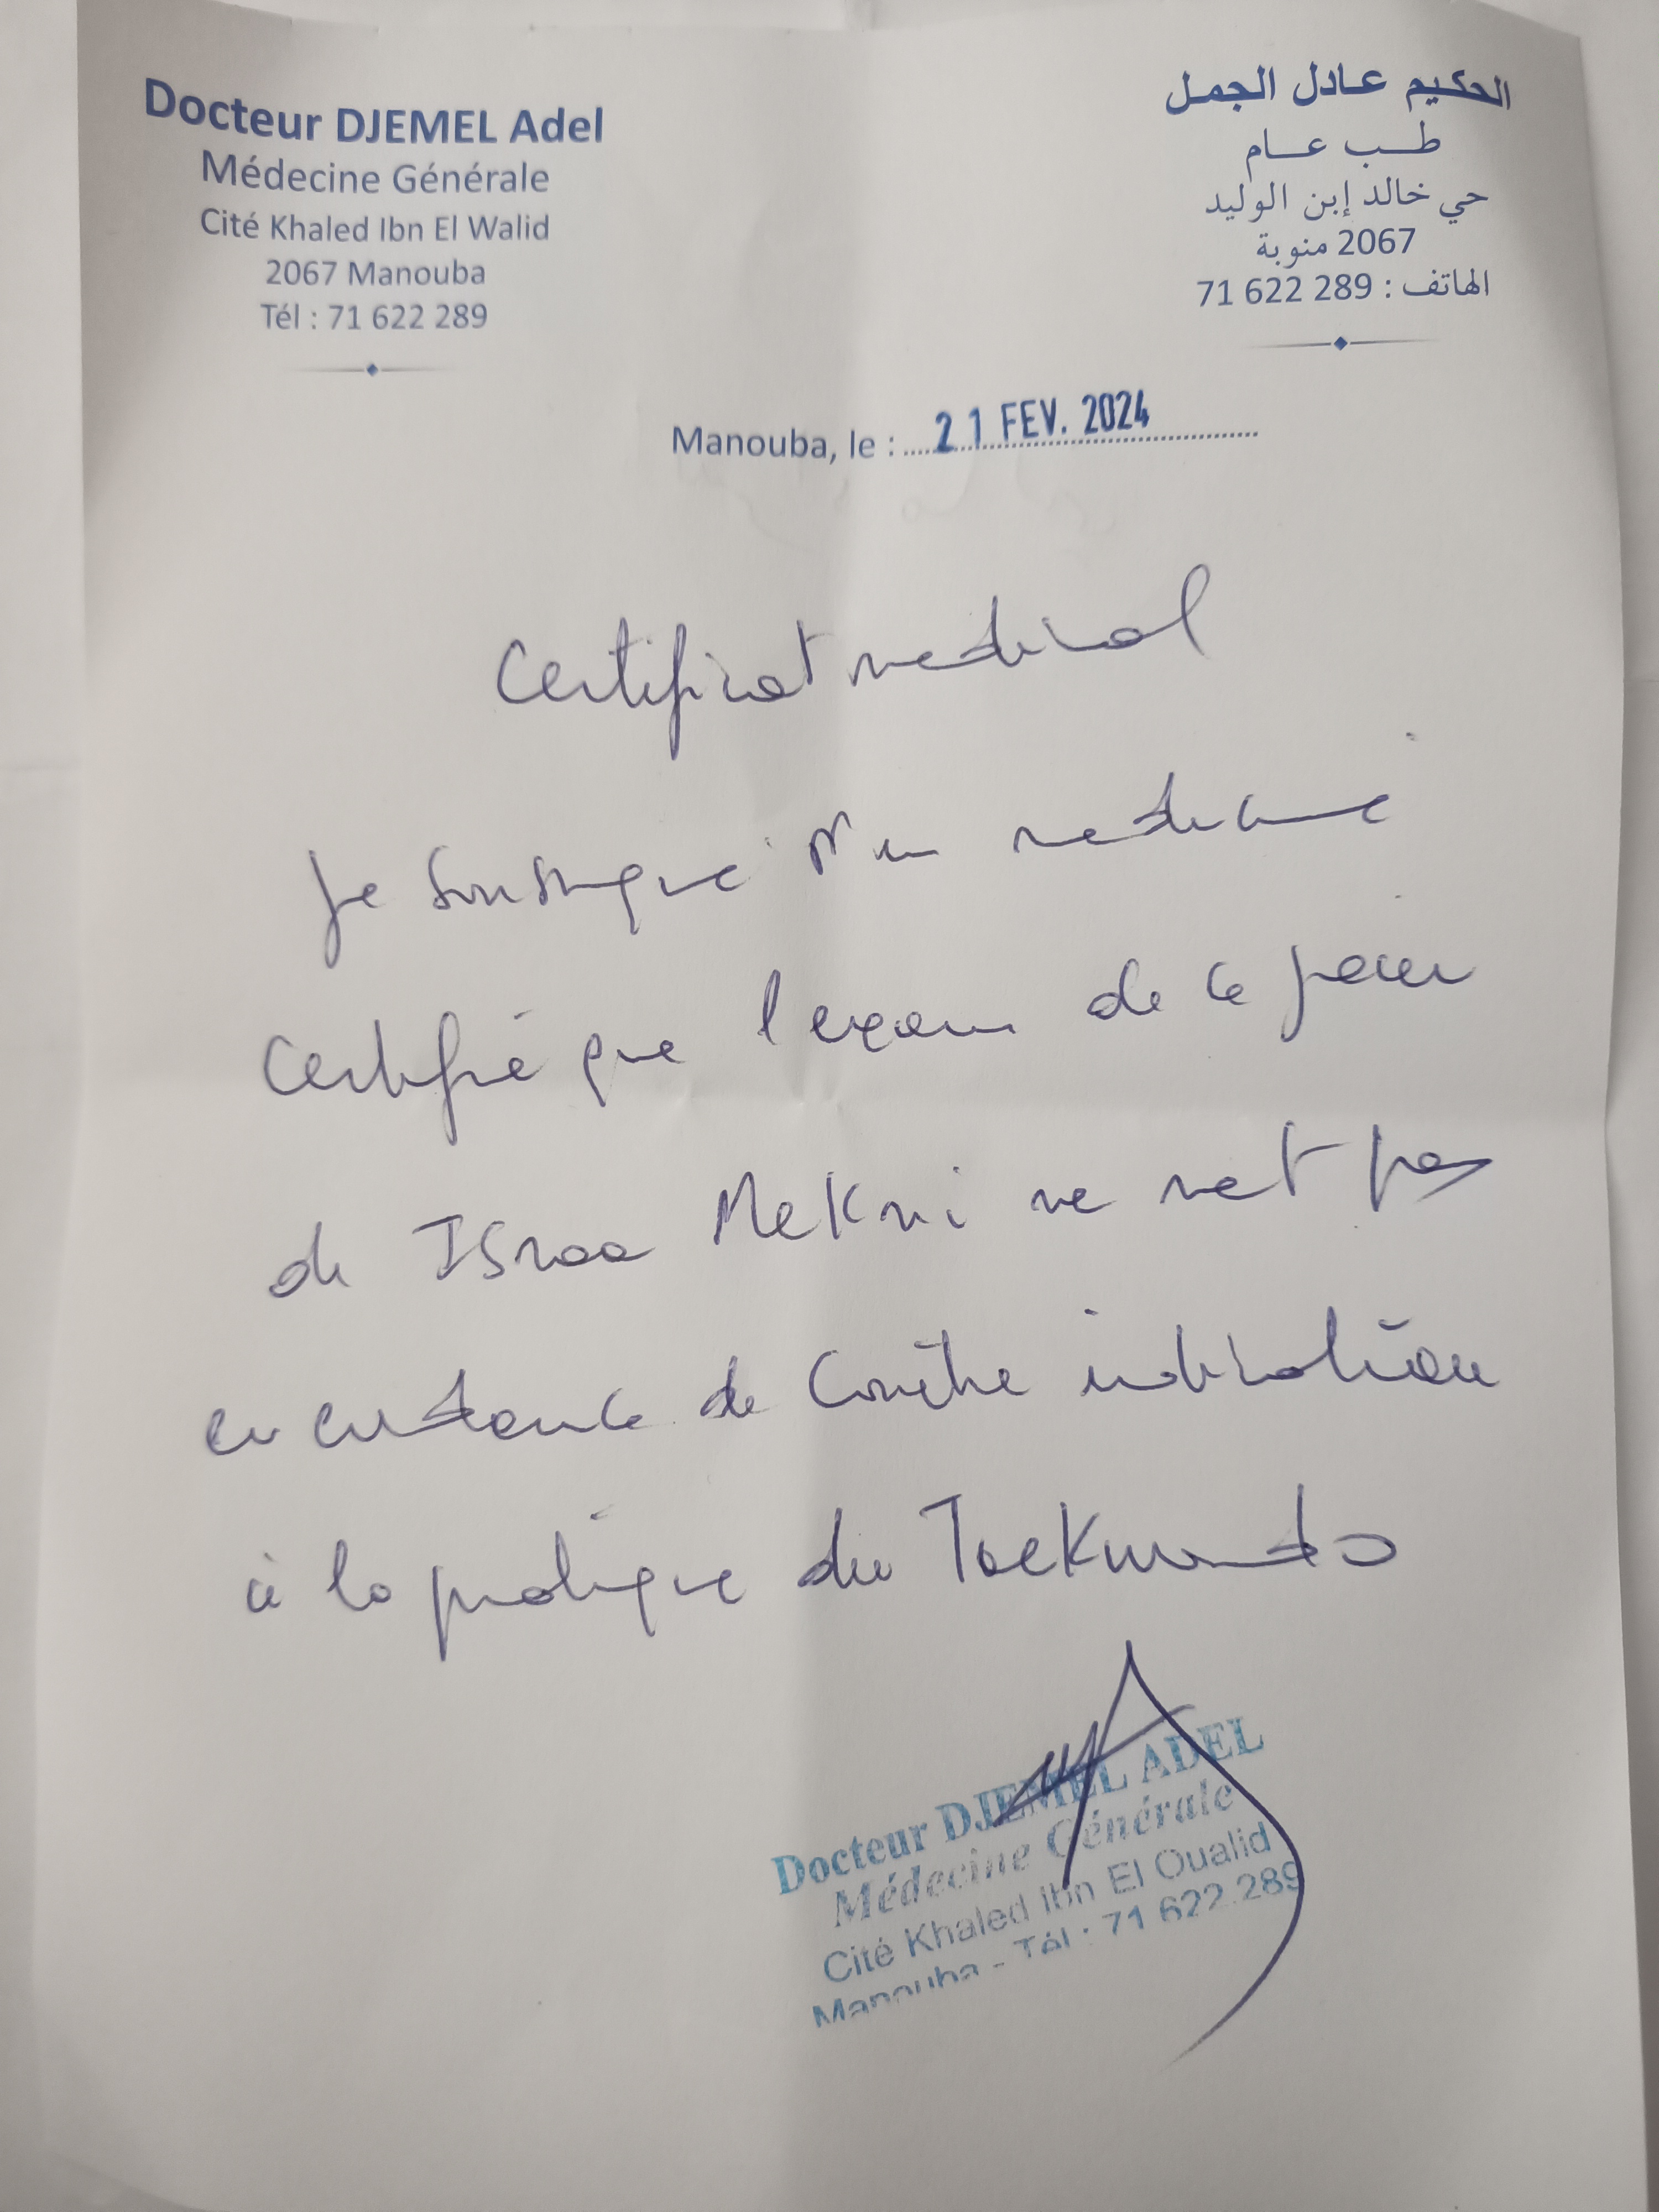 Docteur DJEMEL Adel
Médecine Générale
Cité Khaled Ibn El Walid
2067 Manouba
Tél : 71 622 289
الحكيم عادل الجمل
طب عام
حي خالد إبن الوليد
2067 منوبة
الهاتف : 289 622 71
Manouba, le : 21 FEV. 2024
Certificat medical
Je soussigné en medecine
Certifié que l'examen de ce jour
de Israa Mekni ne met pas
en evidence de contre indication
à la pratique du Taekwondo
Docteur DJEMEL ADEL
Médecine Générale
Cité Khaled Ibn El Oualid
Manouba - Tél : 71 622 289